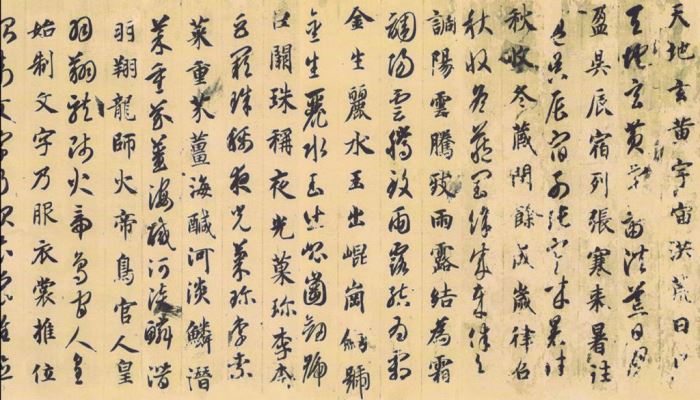 天地玄黃宇宙洪荒日月
天地玄黃宇宙洪荒日月
盈昃辰宿列張寒来暑往
盈昃辰宿列張寒来暑往
秋收冬藏閏餘成歲律召
秋收冬藏閏餘成歲律召
調陽雲騰致雨露結為霜
調陽雲騰致雨露結為霜
金生麗水玉出崐崗劍號
金生麗水玉出崐崗劍號
巨闕珠稱夜光菓珍李柰
巨闕珠稱夜光菓珍李柰
菜重芥薑海醎河淡鱗潛
菜重芥薑海醎河淡鱗潛
羽翔龍師火帝鳥官人皇
羽翔龍師火帝鳥官人皇
始制文字乃服衣裳推位
始制文字乃服衣裳推位